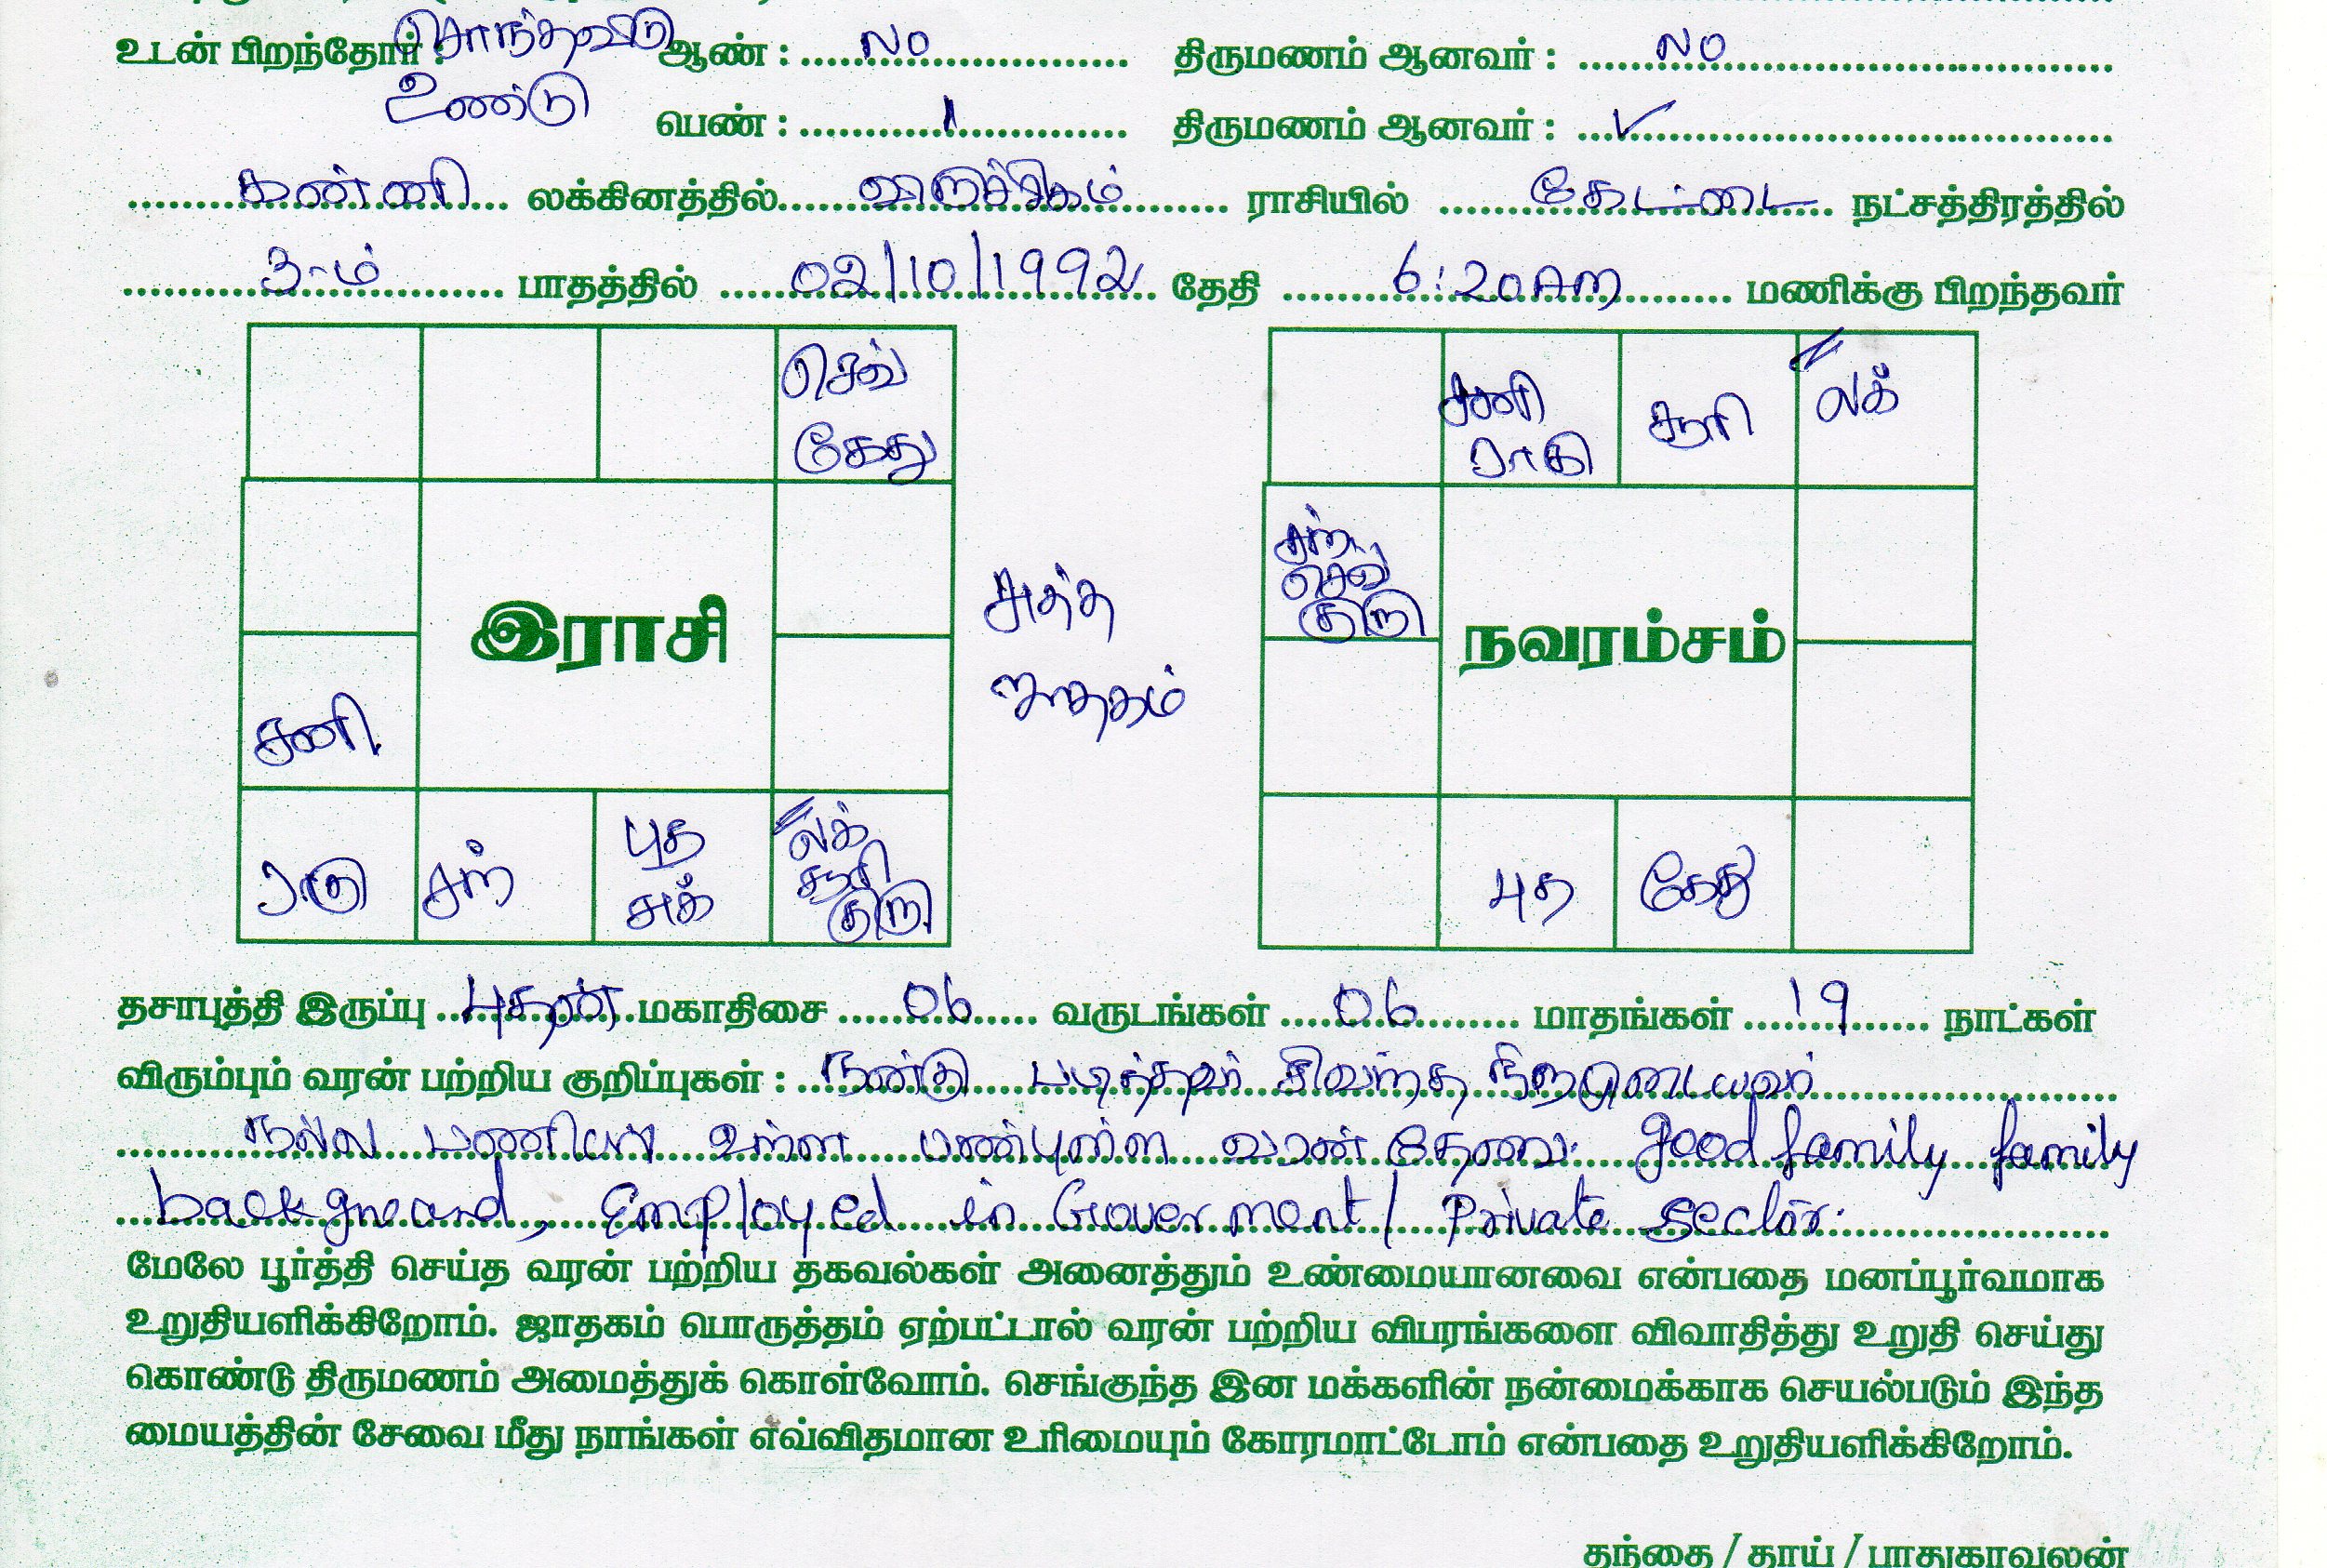 உடன் பிறந்தோர் : சொந்தவீடு ஆண் : No திருமணம் ஆனவர் : No
உண்டு பெண் : 1 திருமணம் ஆனவர் : ✓
கன்னி லக்கினத்தில் விருச்சிகம் ராசியில் கேட்டை நட்சத்திரத்தில்
3-ம் பாதத்தில் 02/10/1992 தேதி 6:20 Am மணிக்கு பிறந்தவர்
செவ்
கேது
சனி
ராகு
சந்
புத
சுக்
லக்
சூரி
குரு
இராசி
சுத்த
ஜாதகம்
சனி
ராகு
சூரி
லக்
சந்
செவ்
குரு
நவரம்சம்
புத
கேது
தசாபுத்தி இருப்பு புதன் மகாதிசை 06 வருடங்கள் 06 மாதங்கள் 19 நாட்கள்
விரும்பும் வரன் பற்றிய குறிப்புகள் : நன்கு படித்தவர் சிவந்த நிறமுடையவர்
நல்ல பணியில் உள்ள பண்புள்ள வரன் தேவை. good family family
background, Employed in Government / Private Sector.
மேலே பூர்த்தி செய்த வரன் பற்றிய தகவல்கள் அனைத்தும் உண்மையானவை என்பதை மனப்பூர்வமாக
உறுதியளிக்கிறோம். ஜாதகம் பொருத்தம் ஏற்பட்டால் வரன் பற்றிய விபரங்களை விவாதித்து உறுதி செய்து
கொண்டு திருமணம் அமைத்துக் கொள்வோம். செங்குந்த இன மக்களின் நன்மைக்காக செயல்படும் இந்த
மையத்தின் சேவை மீது நாங்கள் எவ்விதமான உரிமையும் கோரமாட்டோம் என்பதை உறுதியளிக்கிறோம்.
தந்தை / தாய் / பாதுகாவலன்